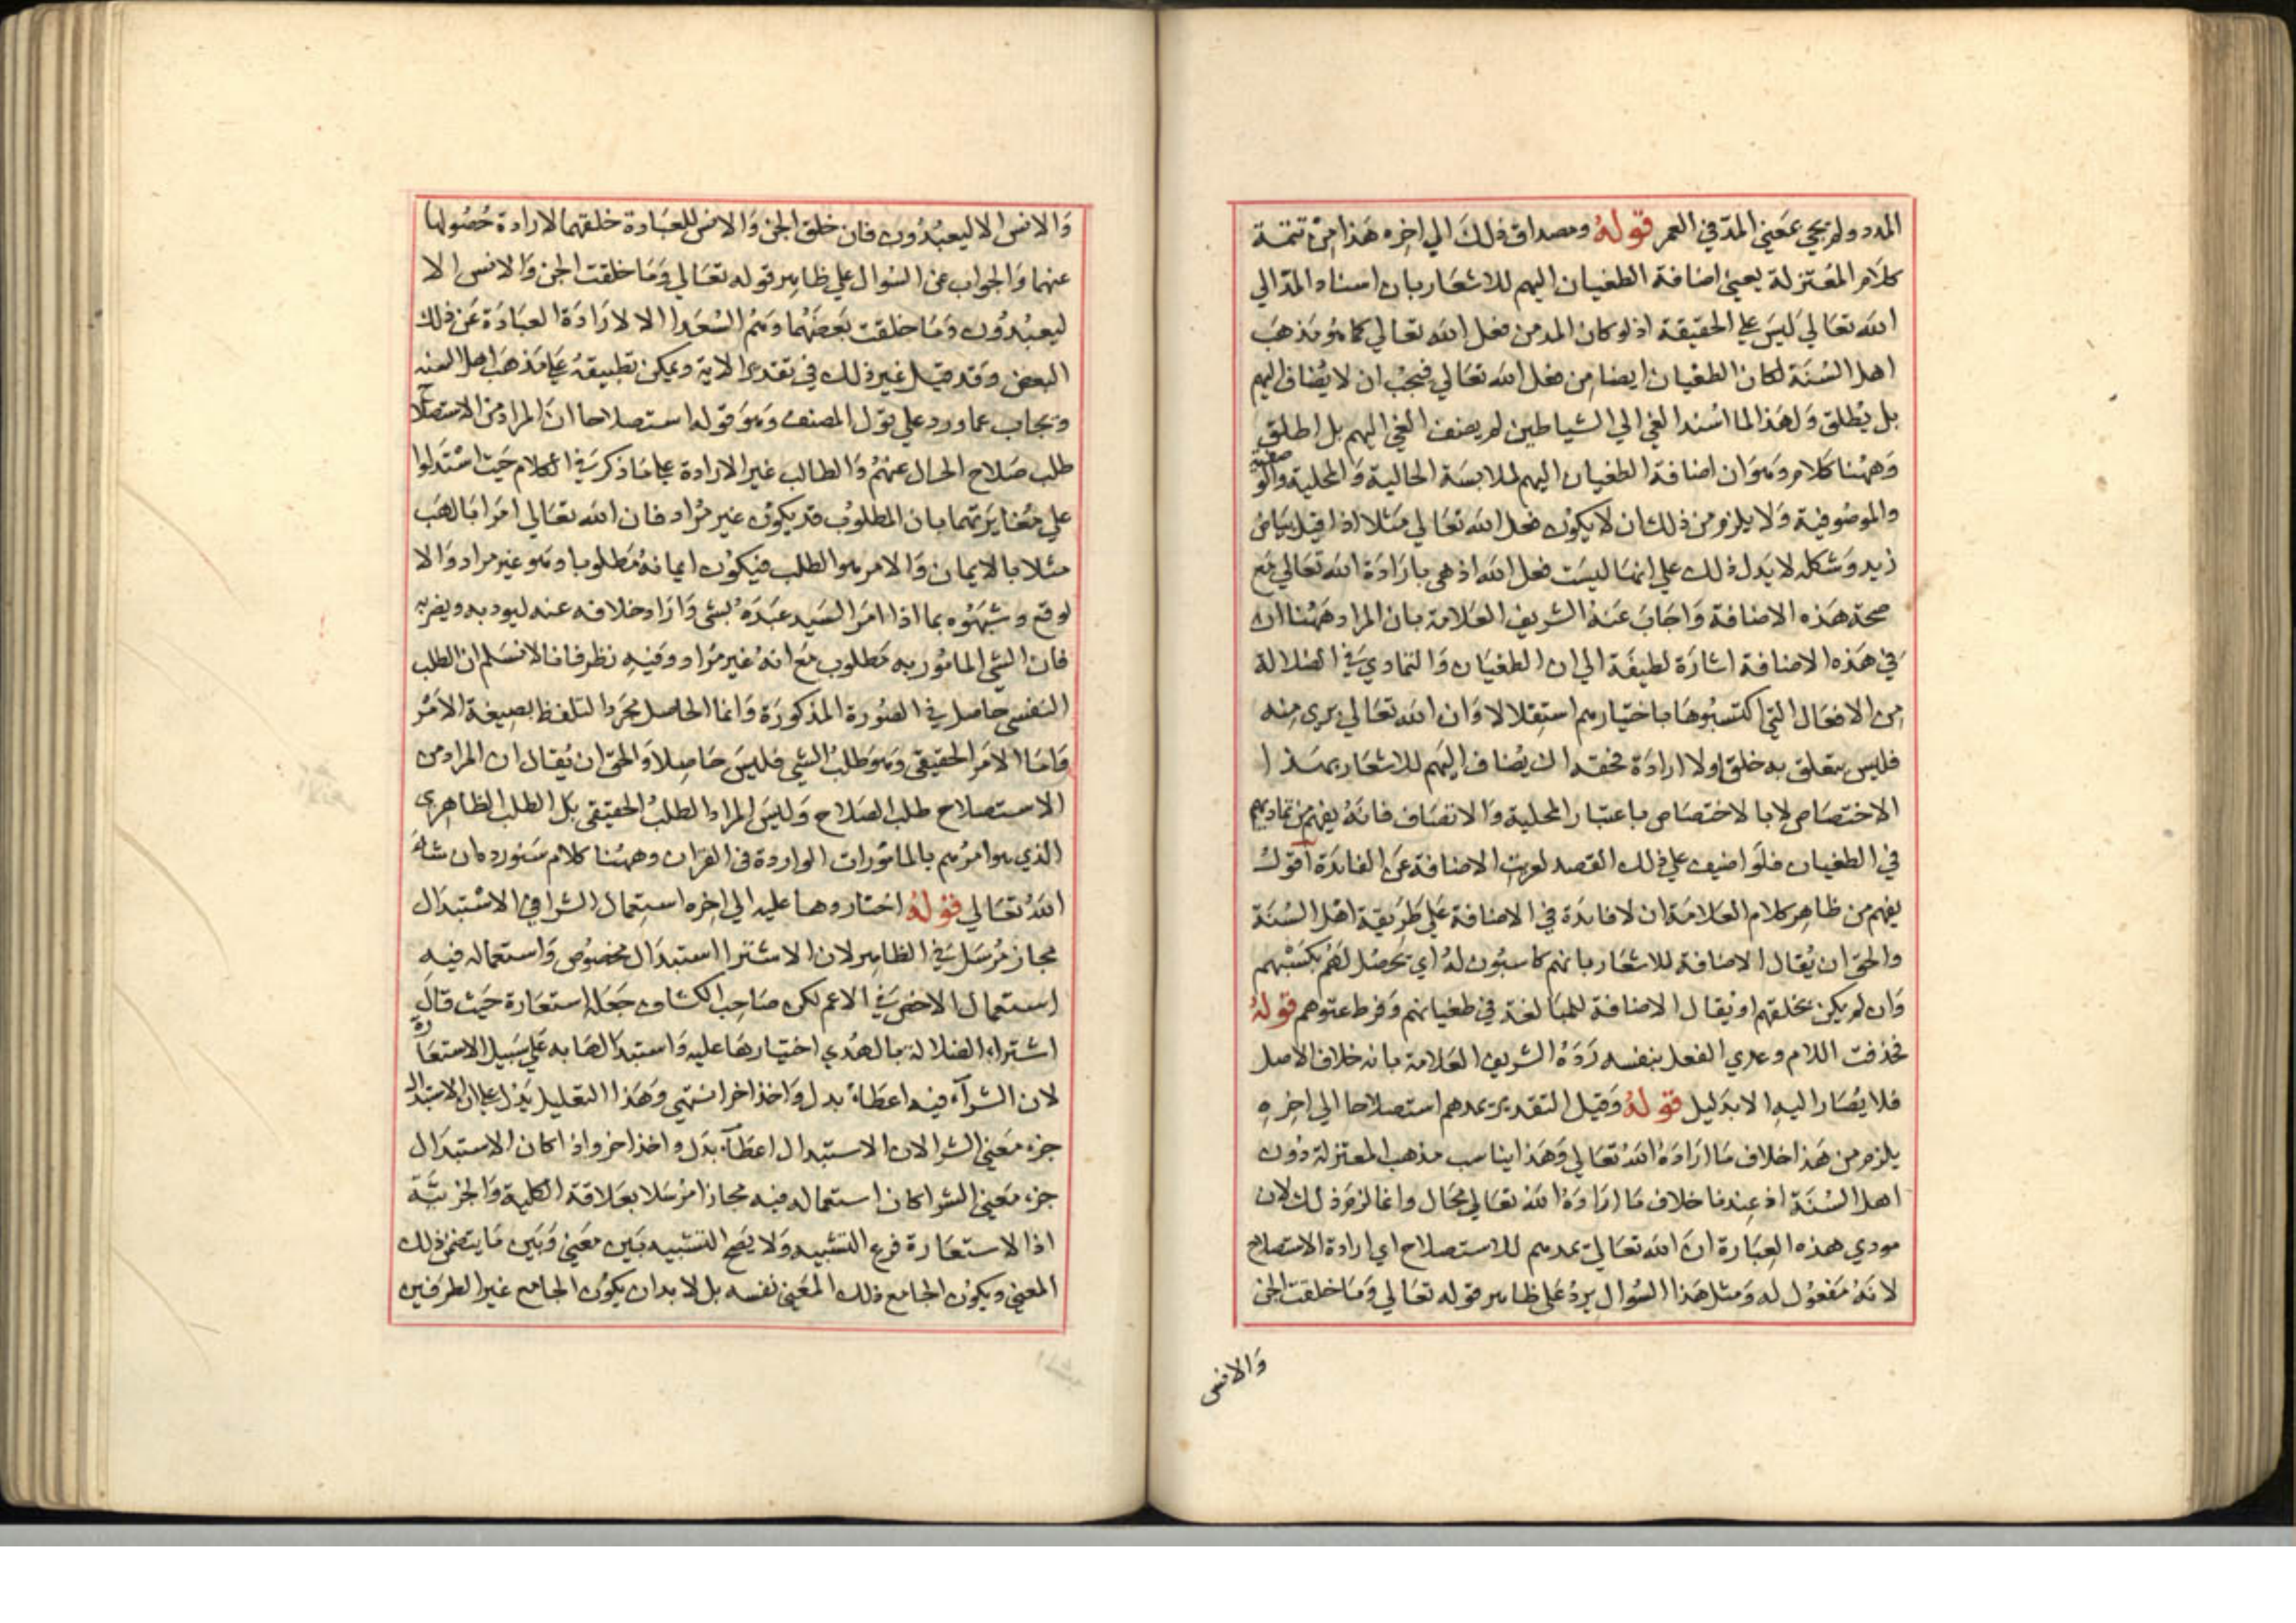 المدد ولم يجي بمعني المد في العمر قوله ومصداق ذلك الي اخره هذا من تتمة
كلام المعتزلة يعني اضافة الطغيان اليهم للاشعار بان اسناد المد الي
الله تعالي ليس علي الحقيقة اذ لو كان المد من فعل الله تعالي كما هو مذهب
اهل السنة لكان الطغيان ايضا من فعل الله تعالي فيجب ان لا يضاف اليهم
بل يطلق ولهذا لما اسند الغي الي الشياطين لم يضف الغي اليهم بل اطلق
وههنا كلام وهو ان اضافة الطغيان اليهم لملابسة الحالية والمحلية والوصفية
والموصوفية ولا يلزم من ذلك ان لا يكون فعل الله تعالي مثلا اذا قيل بياض
زيد وشكله لا يدل ذلك علي انها ليست فعل الله اذ هي بارادة الله تعالي مع
صحة هذه الاضافة واجاب عنه الشريف العلامة بان المراد ههنا ان
في هذه الاضافة اشارة لطيفة الي ان الطغيان والتمادي في الضلالة
من الافعال التي اكتسبوها باختيارهم استقلالا وان الله تعالي بري منه
فليس يتعلق به خلق ولا ارادة فحقه ان يضاف اليهم للاشعار بهذا
الاختصاص لا بالاختصاص باعتبار المحلية والاتصاف فانه يفهم من تماديهم
في الطغيان فلو اضيف علي ذلك القصد لعريت الاضافة عن الفايدة اقول
يفهم من ظاهر كلام العلامة ان لا فايدة في الاضافة علي طريقة اهل السنة
والحق ان يقال الاضافة للاشعار بانهم كاسبون له اي يحصل لهم بكسبهم
وان لم يكن بخلقهم او يقال الاضافة للمبالغة في طغيانهم وفرط عتوهم قوله
فحذفت اللام وعدي الفعل بنفسه رده الشريف العلامة بانه خلاف الاصل
فلا يصار اليه الا بدليل قوله وقيل التقدير يمدهم استصلاحا الي اخره
يلزم من هذا خلاف ما اراده الله تعالي وهذا يناسب مذهب المعتزلة دون
اهل السنة اذ عندنا خلاف ما اراده الله تعالي محال وانما لزم ذلك لان
مودي هذه العبارة ان الله تعالي يمدهم للاستصلاح اي ارادة الاستصلاح
لانه مفعول له ومثل هذا السوال يرد علي ظاهر قوله تعالي وما خلقت الجن
والانس
والانس الا ليعبدون فان خلق الجن والانس للعبادة خلقهما لارادة حصولها
عنهما والجواب عن السوال علي ظاهر قوله تعالي وما خلقت الجن والانس الا
ليعبدون وما خلقت بعضهما وهم السعدا الا لارادة العبادة عن ذلك
البعض وقد قيل غير ذلك في تقدير الاية ويمكن تطبيقه علي مذهب اهل السنة
ويجاب عما ورد علي قول المصنف وهو قوله استصلاحا ان المراد من الاستصلاح
طلب صلاح الحال عنهم والطالب غير الارادة علي ما ذكر في الكلام حيث استدلوا
علي مغايرتهما بان المطلوب قد يكون غير مراد فان الله تعالي امر ابا لهب
مثلا بالايمان والامر هو الطلب فيكون ايمانه مطلوبا وهو غير مراد والا
لوقع وشبهوه بما اذا امر السيد عبده بشي واراد خلافه عنه ليود به ويضربه
فان الشي المامور به مطلوب مع انه غير مراد وفيه نظر فانا لا نسلم ان الطلب
النفسي حاصل في الصورة المذكورة وانما الحاصل مجرد التلفظ بصيغة الامر
واما الامر الحقيقي وهو طلب الشي فليس حاصلا والحق ان يقال ان المراد من
الاستصلاح طلب الصلاح وليس المراد الطلب الحقيقي بل الطلب الظاهري
الذي هو امرهم بالمامورات الواردة في القران وههنا كلام سنورده ان شاء
الله تعالي قوله اختاروها عليه الي اخره استعمال الشرا في الاستبدال
مجاز مرسل في الظاهر لان الاشترا استبدال مخصوص واستعماله فيه
استعمال الاخص في الاعم لكن صاحب الكشاف جعله استعارة حيث قال
اشتراء الضلالة بالهدي اختيارها عليه واستبدالها به علي سبيل الاستعارة
لان الشرآء فيه اعطاء بدل واخذ اخر انتهي وهذا التعليل يدل علي ان الاستبدال
جزء معني الشرا لان الاستبدال اعطآء بدل واخذ اخر واذا كان الاستبدال
جزء معني الشرا كان استعماله فيه مجازا مرسلا بعلاقة الكلية والجزئية
اذ الاستعارة فرع التشبيه ولا يصح التشبيه بين معني وبين ما يتضمن ذلك
المعني ويكون الجامع ذلك المعني نفسه بل لا بد ان يكون الجامع غير الطرفين